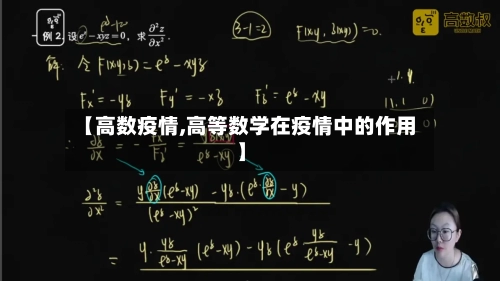 e^z-xyz 3-1=2 F(x,y,z(x,y))=0.
例2. 设 e^z-xyz=0, 求 ∂²z/∂x². 高数叔
解: 令 F(x,y,z)=e^z-xyz
Fx'=-yz Fy'=-xz Fz'=e^z-xy
【高数疫情,高等数学在疫情中的作用
】
∴ ∂z/∂x = - Fx/Fz = yz/(e^z-xy)
∂²z/∂x² = [y ∂z/∂x (e^z-xy) - yz·(e^z·∂z/∂x - y)]/(e^z-xy)²
= y·yz/(e^z-xy) (e^z-xy) - yz(e^z yz/(e^z-xy) - y)